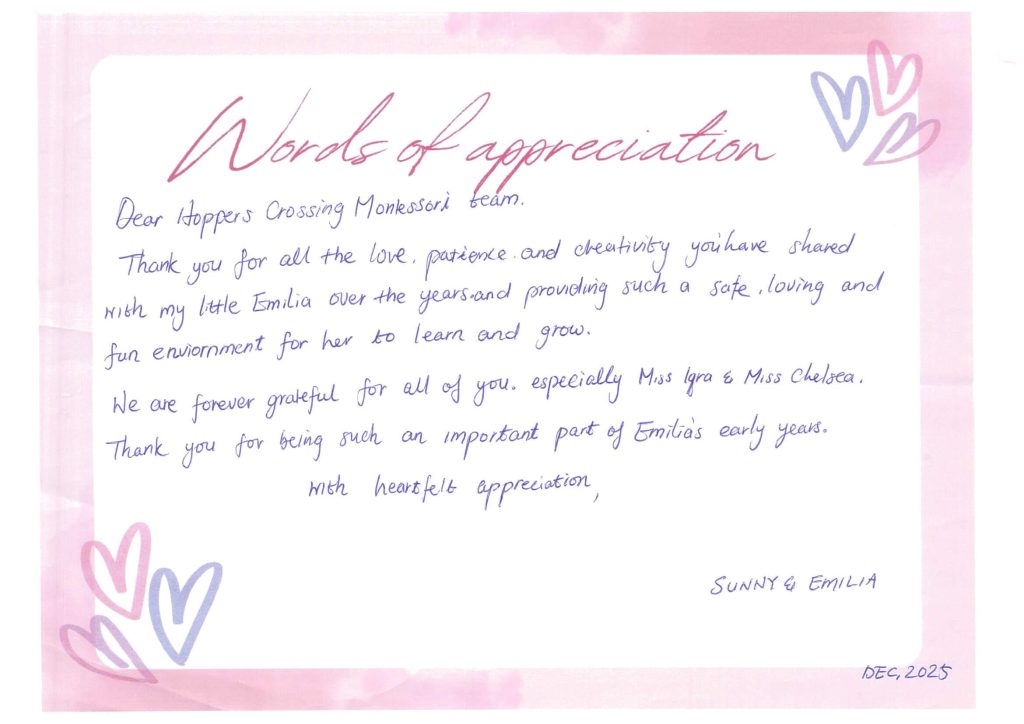 Words of appreciation
Dear Hoppers Crossing Montessori team.
Thank you for all the love, patience, and creativity you'have shared
with my little Emilia over the years, and providing such a safe, loving and
fun enviornment for her to learn and grow.
We are forever grateful for all of you, especially Miss Iqra & Miss Chelsea.
Thank you for being such an important part of Emilia's early years.
with heartfelt appreciation,
SUNNY & EMILIA
DEC, 2025